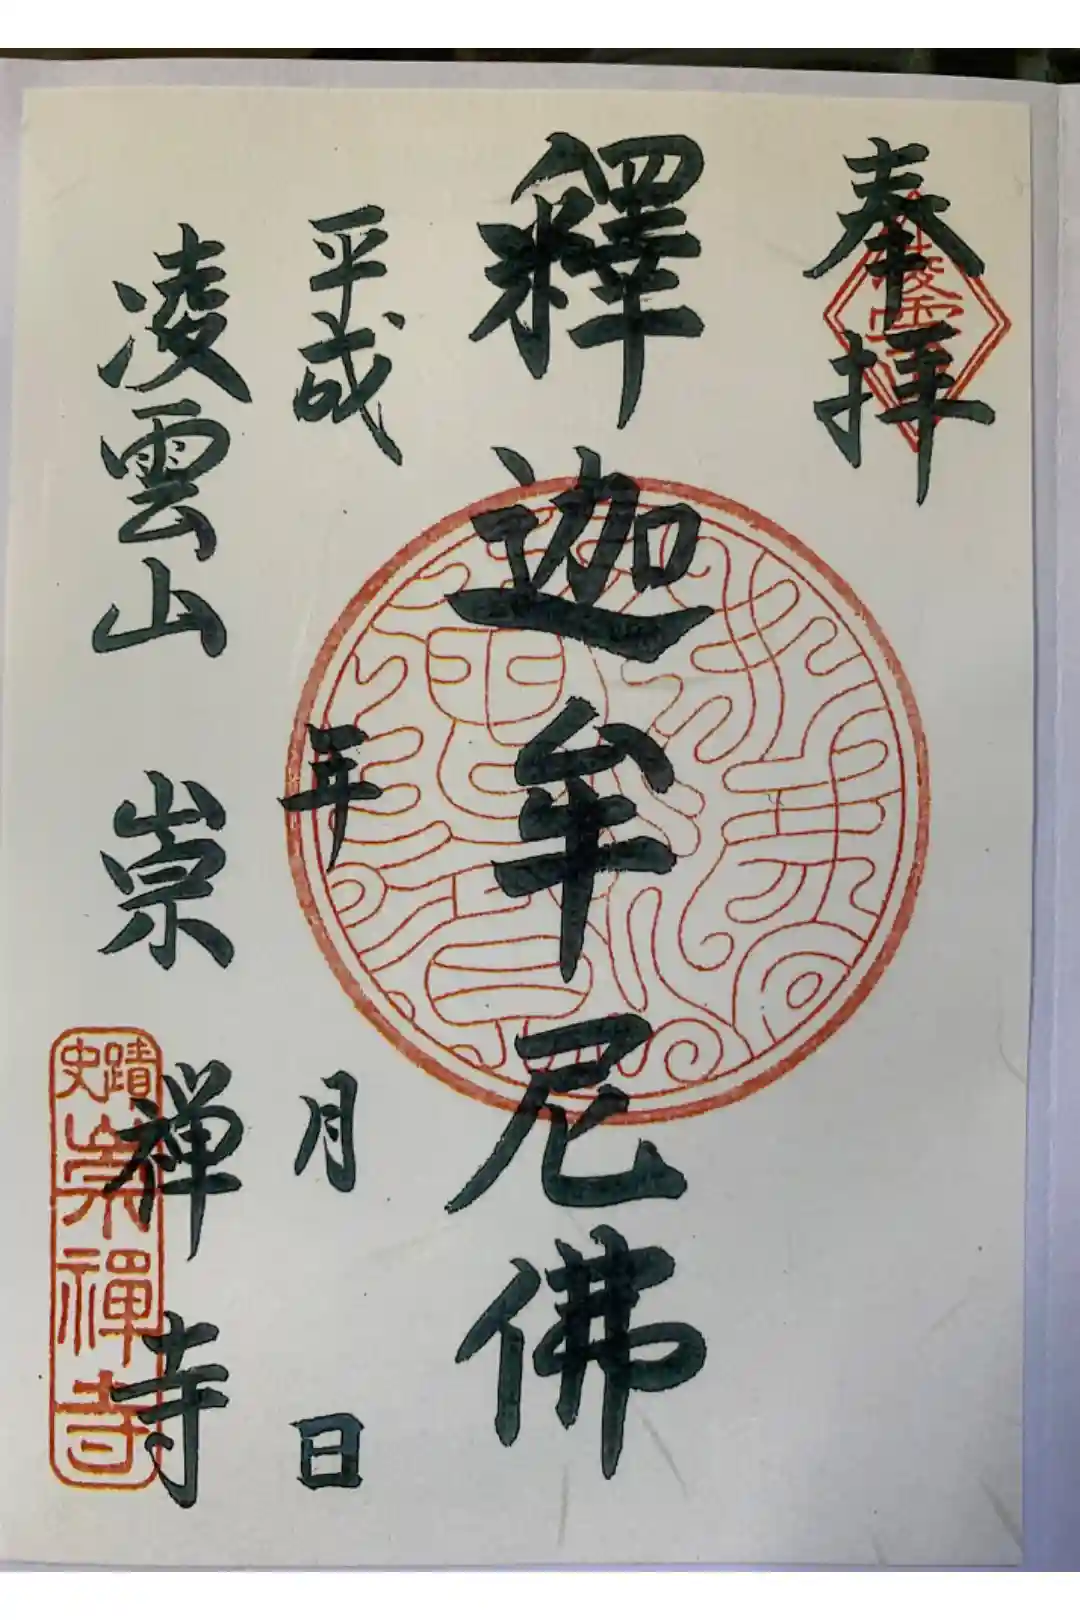 奉拝
釋迦牟尼佛
平成 年 月 日
凌雲山 崇禅寺
史蹟
崇禪寺